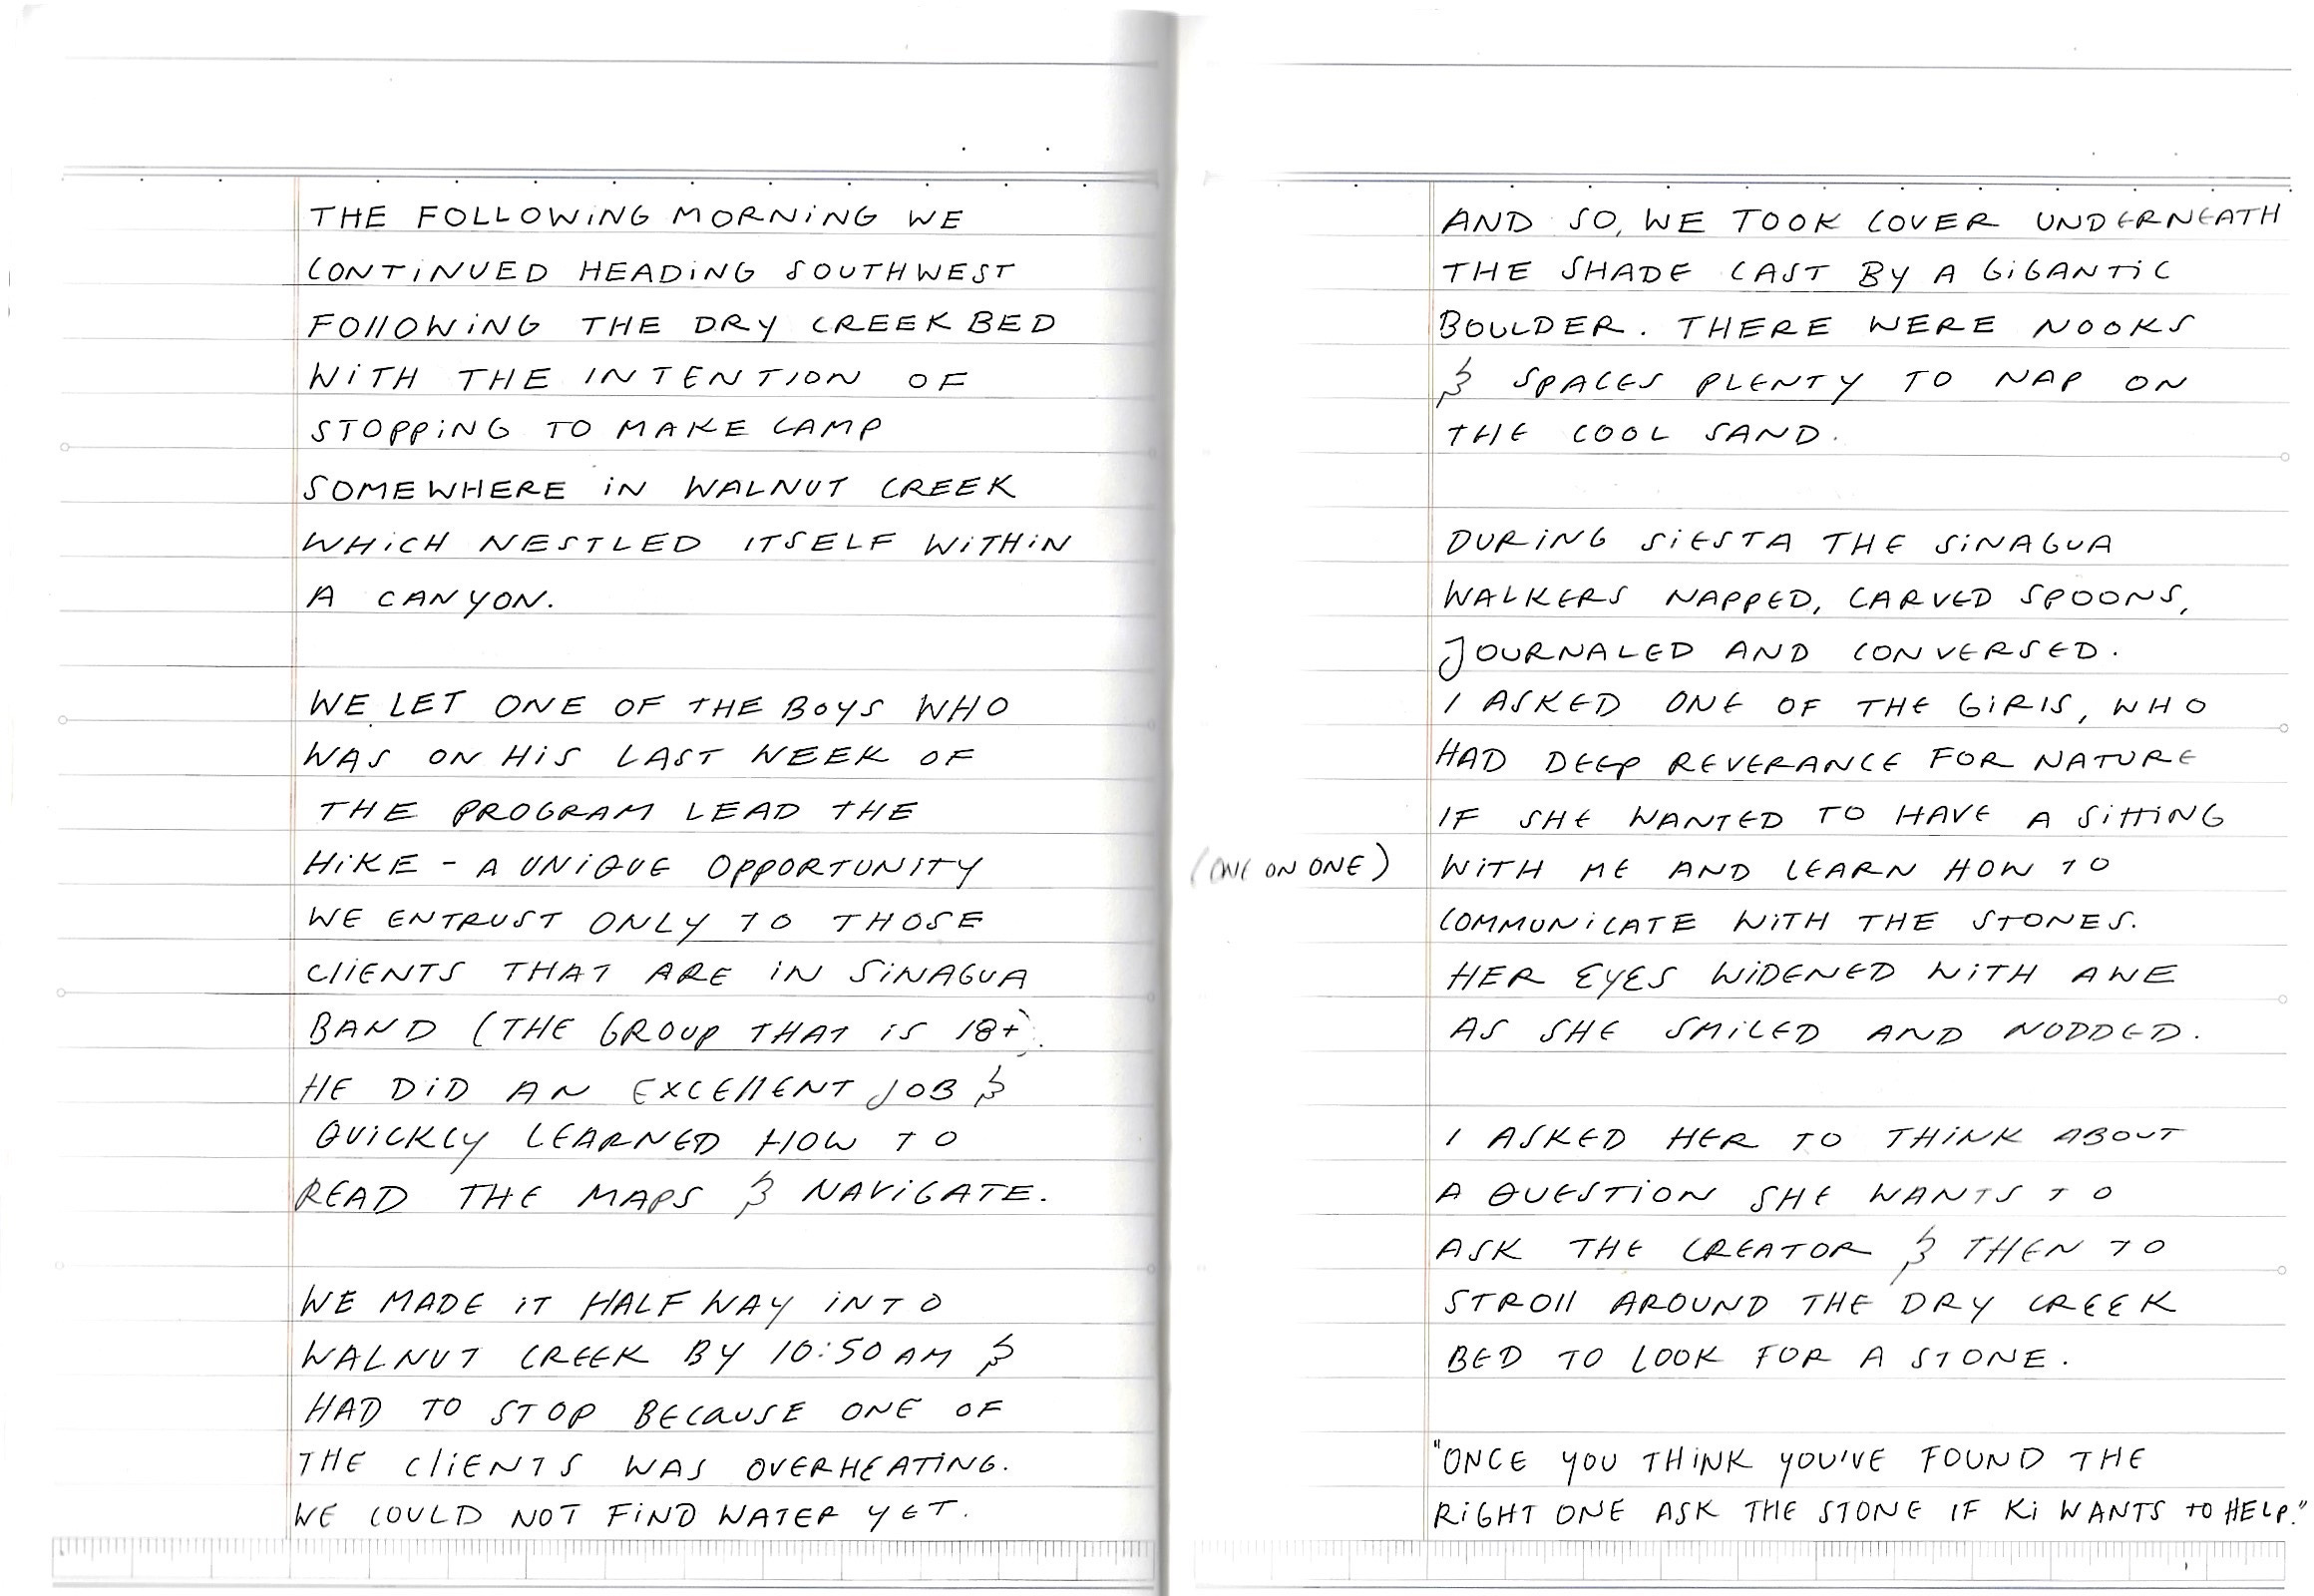 THE FOLLOWING MORNING WE
CONTINUED HEADING SOUTHWEST
FOllOWING THE DRY CREEK BED
WITH THE INTENTION OF
STOPPING TO MAKE CAMP
SOMEWHERE IN WALNUT CREEK
WHICH NESTLED ITSELF WITHIN
A CANYON.
WE LET ONE OF THE BOYS WHO
WAS ON HIS LAST WEEK OF
THE PROGRAM LEAD THE
HIKE - A UNIQUE OPPORTUNITY
WE ENTRUST ONLY TO THOSE
ClIENTS THAT ARE IN SINAGUA
BAND (THE GROUP THAT IS 18+).
HE DID AN EXCEllENT JOB &
QUICKLY LEARNED HOW TO
READ THE MAPS & NAVIGATE.
WE MADE IT HALF WAY INTO
WALNUT CREEK BY 10:50 AM &
HAD TO STOP BECAUSE ONE OF
THE ClIENTS WAS OVERHEATING.
WE COULD NOT FIND WATER YET.
AND SO, WE TOOK COVER UNDERNEATH
THE SHADE CAST BY A GIGANTIC
BOULDER. THERE WERE NOOKS
& SPACES PLENTY TO NAP ON
THE COOL SAND.
DURING SIESTA THE SINAGUA
WALKERS NAPPED, CARVED SPOONS,
JOURNALED AND CONVERSED.
I ASKED ONE OF THE GIRlS, WHO
HAD DEEP REVERANCE FOR NATURE
IF SHE WANTED TO HAVE A SITTING
(ONE ON ONE) WITH ME AND LEARN HOW TO
COMMUNICATE WITH THE STONES.
HER EYES WIDENED WITH AWE
AS SHE SMILED AND NODDED.
I ASKED HER TO THINK ABOUT
A QUESTION SHE WANTS TO
ASK THE CREATOR & THEN TO
STROll AROUND THE DRY CREEK
BED TO LOOK FOR A STONE.
"ONCE YOU THINK YOU'VE FOUND THE
RIGHT ONE ASK THE STONE IF KI WANTS TO HELP."